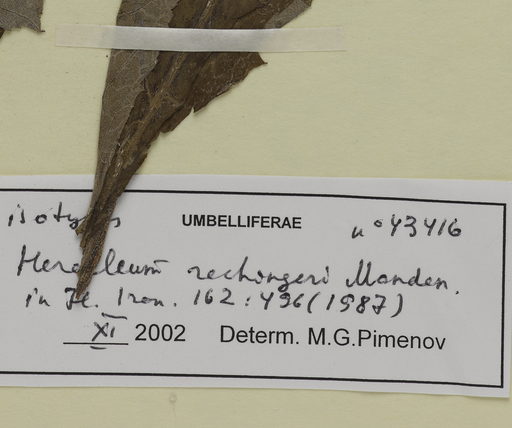 isotypus UMBELLIFERAE n° 43416
Heracleum rechingeri Manden.
in Fl. Iran. 162: 496 (1987)
XI 2002 Determ. M.G.Pimenov